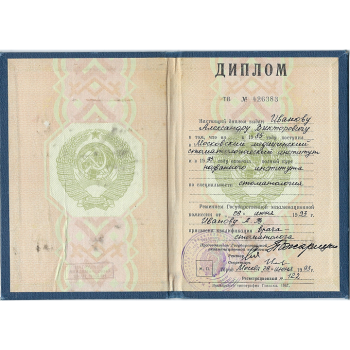 ДИПЛОМ
ТВ № 426383
Настоящий диплом выдан Иванову
Александру Викторовичу
в том, что он в 19 поступил
в Московский медицинский
стоматологический институт
и в 1993 году окончил полный курс
названного института
по специальности стоматология
Решением Государственной экзаменационной
комиссии от 28 июня 1993 г.
Иванову А. В.
присвоена квалификация врача
стоматолога
Председатель Государственной
экзаменационной комиссии
Ректор
Секретарь
М.П.
Москва 28 июня 1993 г.
Регистрационный № 122